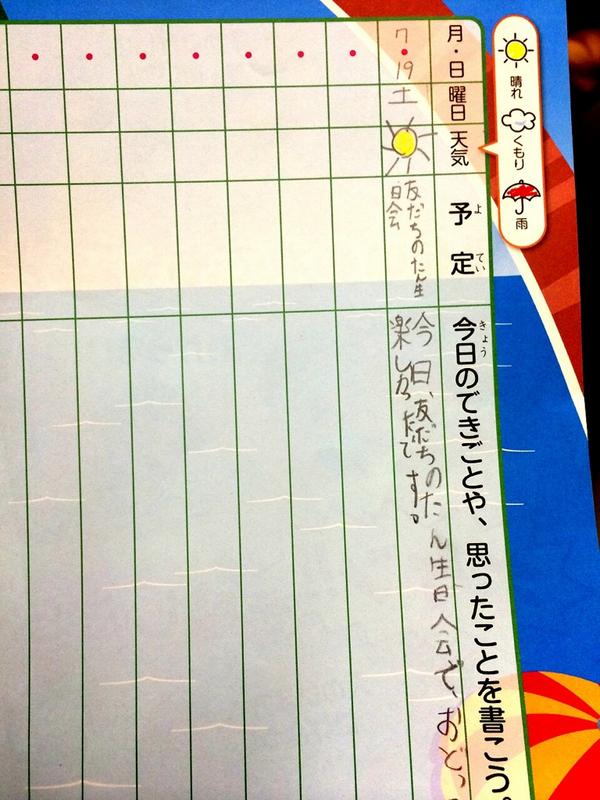 晴れ
くもり
雨
月・日
曜日
天気
予定
よてい
今日のできごとや、思ったことを書こう。
きょう
7
19
土
友だちのたん生
日会
今日、友だちのたん生日会で、おどっ
楽しかったです。